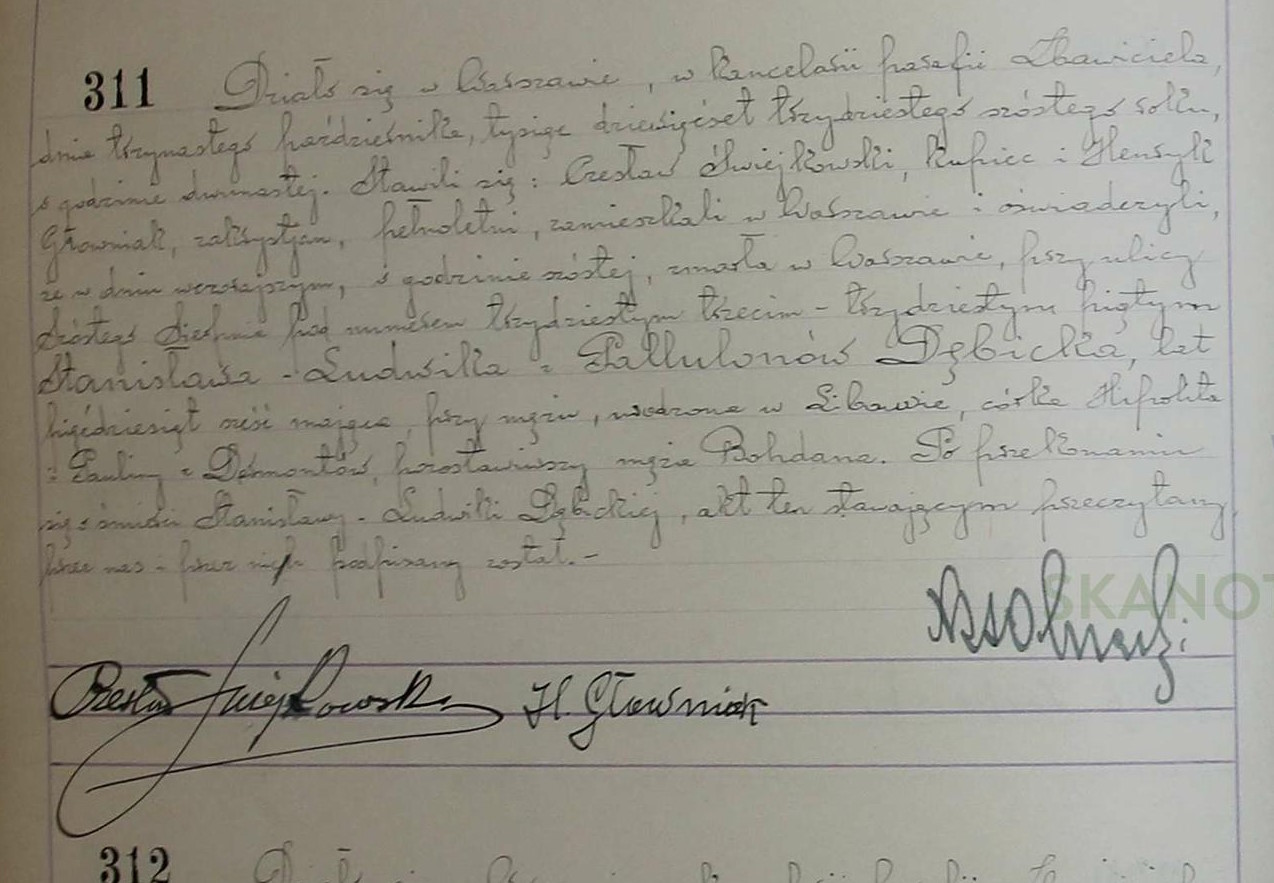 311 Działo się w Warszawie, w kancelarii parafii Zbawiciela,
dnia trzynastego października, tysiąc dziewięćset trzydziestego szóstego roku,
o godzinie dwunastej. Stawili się: Czesław Świejkowski, kupiec i Henryk
Głowniak, zakrystjan, pełnoletni, zamieszkali w Warszawie i oświadczyli,
że w dniu wczorajszym, o godzinie szóstej, zmarła w Warszawie, przy ulicy
Szóstego Sierpnia pod numerem trzydziestym trzecim - trzydziestym piątym
Stanisława - Ludwika z Pallulonów Dębicka, lat
pięćdziesiąt sześć mająca, przy mężu, urodzona w Libawie, córka Hipolita
i Pauliny z Dormontów, pozostawiwszy męża Bohdana. Po przekonaniu
się o śmierci Stanisławy - Ludwiki Dębickiej, akt ten stawającym przeczytany
przez nas i przez nich podpisany został. -
SKANOT
Czesław Świejkowski H. Głowniak
312